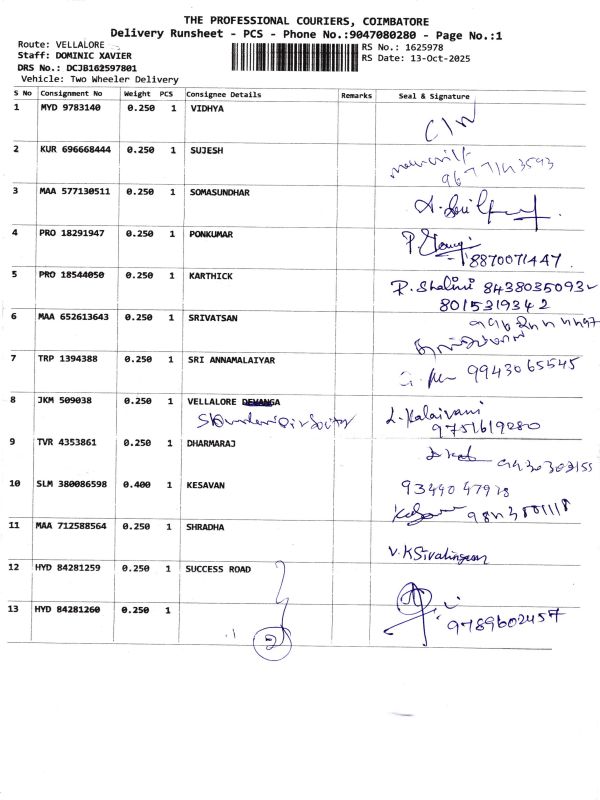 THE PROFESSIONAL COURIERS, COIMBATORE
Delivery Runsheet - PCS - Phone No.:9047080280 - Page No.:1
Route: VELLALORE
Staff: DOMINIC XAVIER
DRS No.: DCJB162597801
Vehicle: Two Wheeler Delivery
RS No.: 1625978
RS Date: 13-Oct-2025
S No Consignment No Weight PCS Consignee Details Remarks Seal & Signature
1 MYD 9783140 0.250 1 VIDHYA
2 KUR 696668444 0.250 1 SUJESH
3 MAA 577130511 0.250 1 SOMASUNDHAR
4 PRO 18291947 0.250 1 PONKUMAR
8870071447
5 PRO 18544050 0.250 1 KARTHICK
R. Shalini 8438035093
8015319342
6 MAA 652613643 0.250 1 SRIVATSAN
7 TRP 1394388 0.250 1 SRI ANNAMALAIYAR
9943065545
8 JKM 509038 0.250 1 VELLALORE DEVANGA
L. Kalaivani
9751619280
9 TVR 4353861 0.250 1 DHARMARAJ
10 SLM 380086598 0.400 1 KESAVAN
11 MAA 712588564 0.250 1 SHRADHA
V.K Sivalingam
12 HYD 84281259 0.250 1 SUCCESS ROAD
13 HYD 84281260 0.250 1
9789602457
2